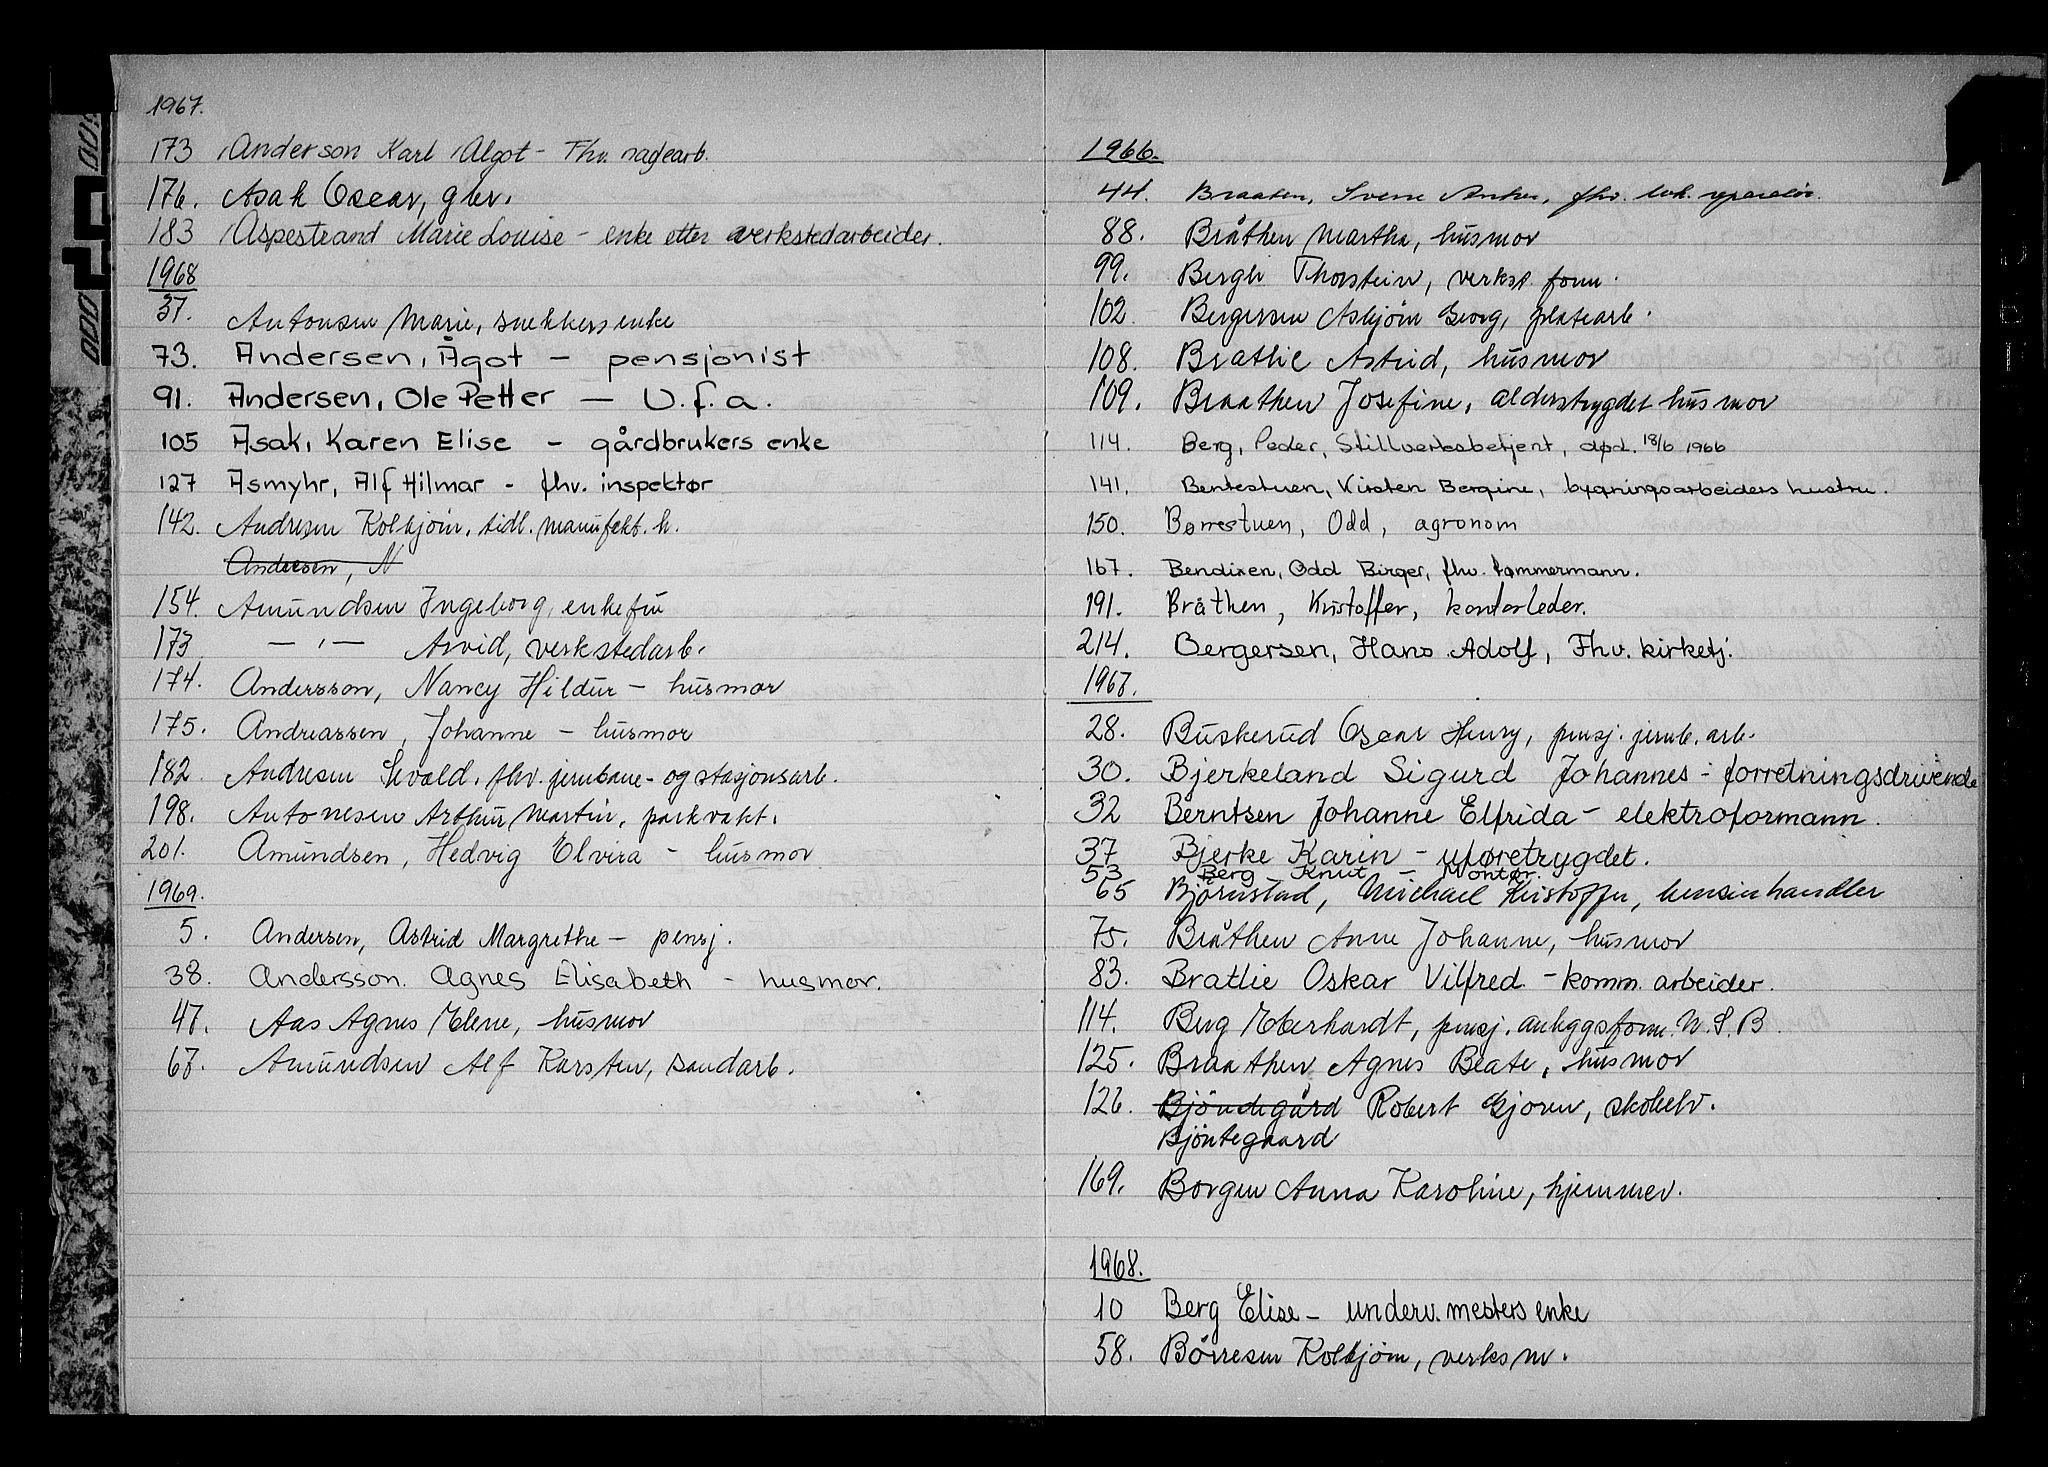 1967.
173 Anderson Karl Algot - Fhv. sagearb.
176. Asak Oscar, gbr.
183 Aspestrand Marie Louise - enke etter verkstedarbeider.
1968
37. Antonsen Marie, snekkers enke
73. Andersen, Ågot - pensjonist
91. Andersen, Ole Petter - U.f.a.
105 Asak, Karen Elise - gårdbrukers enke
127 Asmyhr, Alf Hilmar - fhv. inspektør
142. Andresen Kolbjörn, tidl. manufakt. h.
Andersen, N
154. Amundsen Ingeborg, enkefru
173 — " — Arvid, verkstedarb.
174. Andersson, Nancy Hildur - husmor
175. Andreassen, Johanne - husmor
182. Andresen Sevald, fhv. jernbane- og stasjonsarb.
198. Antonesen Arthur Martin, parkvakt.
201. Amundsen, Hedvig Elvira - husmor
1969.
5. Andersen, Astrid Margrethe - pensj.
38. Andersson. Agnes Elisabeth - husmor.
47. Aas Agnes Elene, husmor
67. Amundsen Alf Karsten, sandarb.
1966.
44. Braaten, Sverre Anker, fhv. lok. reparatør.
88. Bråthen Martha, husmor
99. Bergh Thorstein, verkst. form.
102 Bergersen Asbjörn Georg, platearb.
108. Bratlie Astrid, husmor
109. Braathen Josefine, alderstrygdet husmor
114. Berg, Peder, Stillverksbetjent, død. 18/6 1966
141. Bentestuen, Kirsten Bergine, bygningsarbeiders hustru.
150. Børrestuen, Odd, agronom
167. Bendixen, Odd Birger, fhv. tømmermann.
191. Bråthen, Kristoffer, kontorleder.
214. Bergersen, Hans Adolf, Fhv. kirketj.
1967.
28. Buskerud Oscar Henry, pensj. jernb. arb.
30. Bjerkeland Sigurd Johannes - forretningsdrivende
32 Berntsen Johanne Elfrida - elektroformann.
37 Bjerke Karin - uføretrygdet.
53 Berg Knut - Montør.
65 Björnstad, Michael Kristoffer, bensinhandler
75. Bråthen Anne Johanne, husmor
83. Bratlie Oskar Vilfred - komm. arbeider.
114. Berg Eberhardt, pensj. anleggsform. N.S.B.
125. Braathen Agnes Beate, husmor
126. Bjöndegård Robert Gjoren, skoleelv.
Bjöntegaard
169. Borgen Anna Karoline, hjemmev.
1968.
10 Berg Elise - underv. mesters enke
58. Börresen Kolbjörn, verksm.